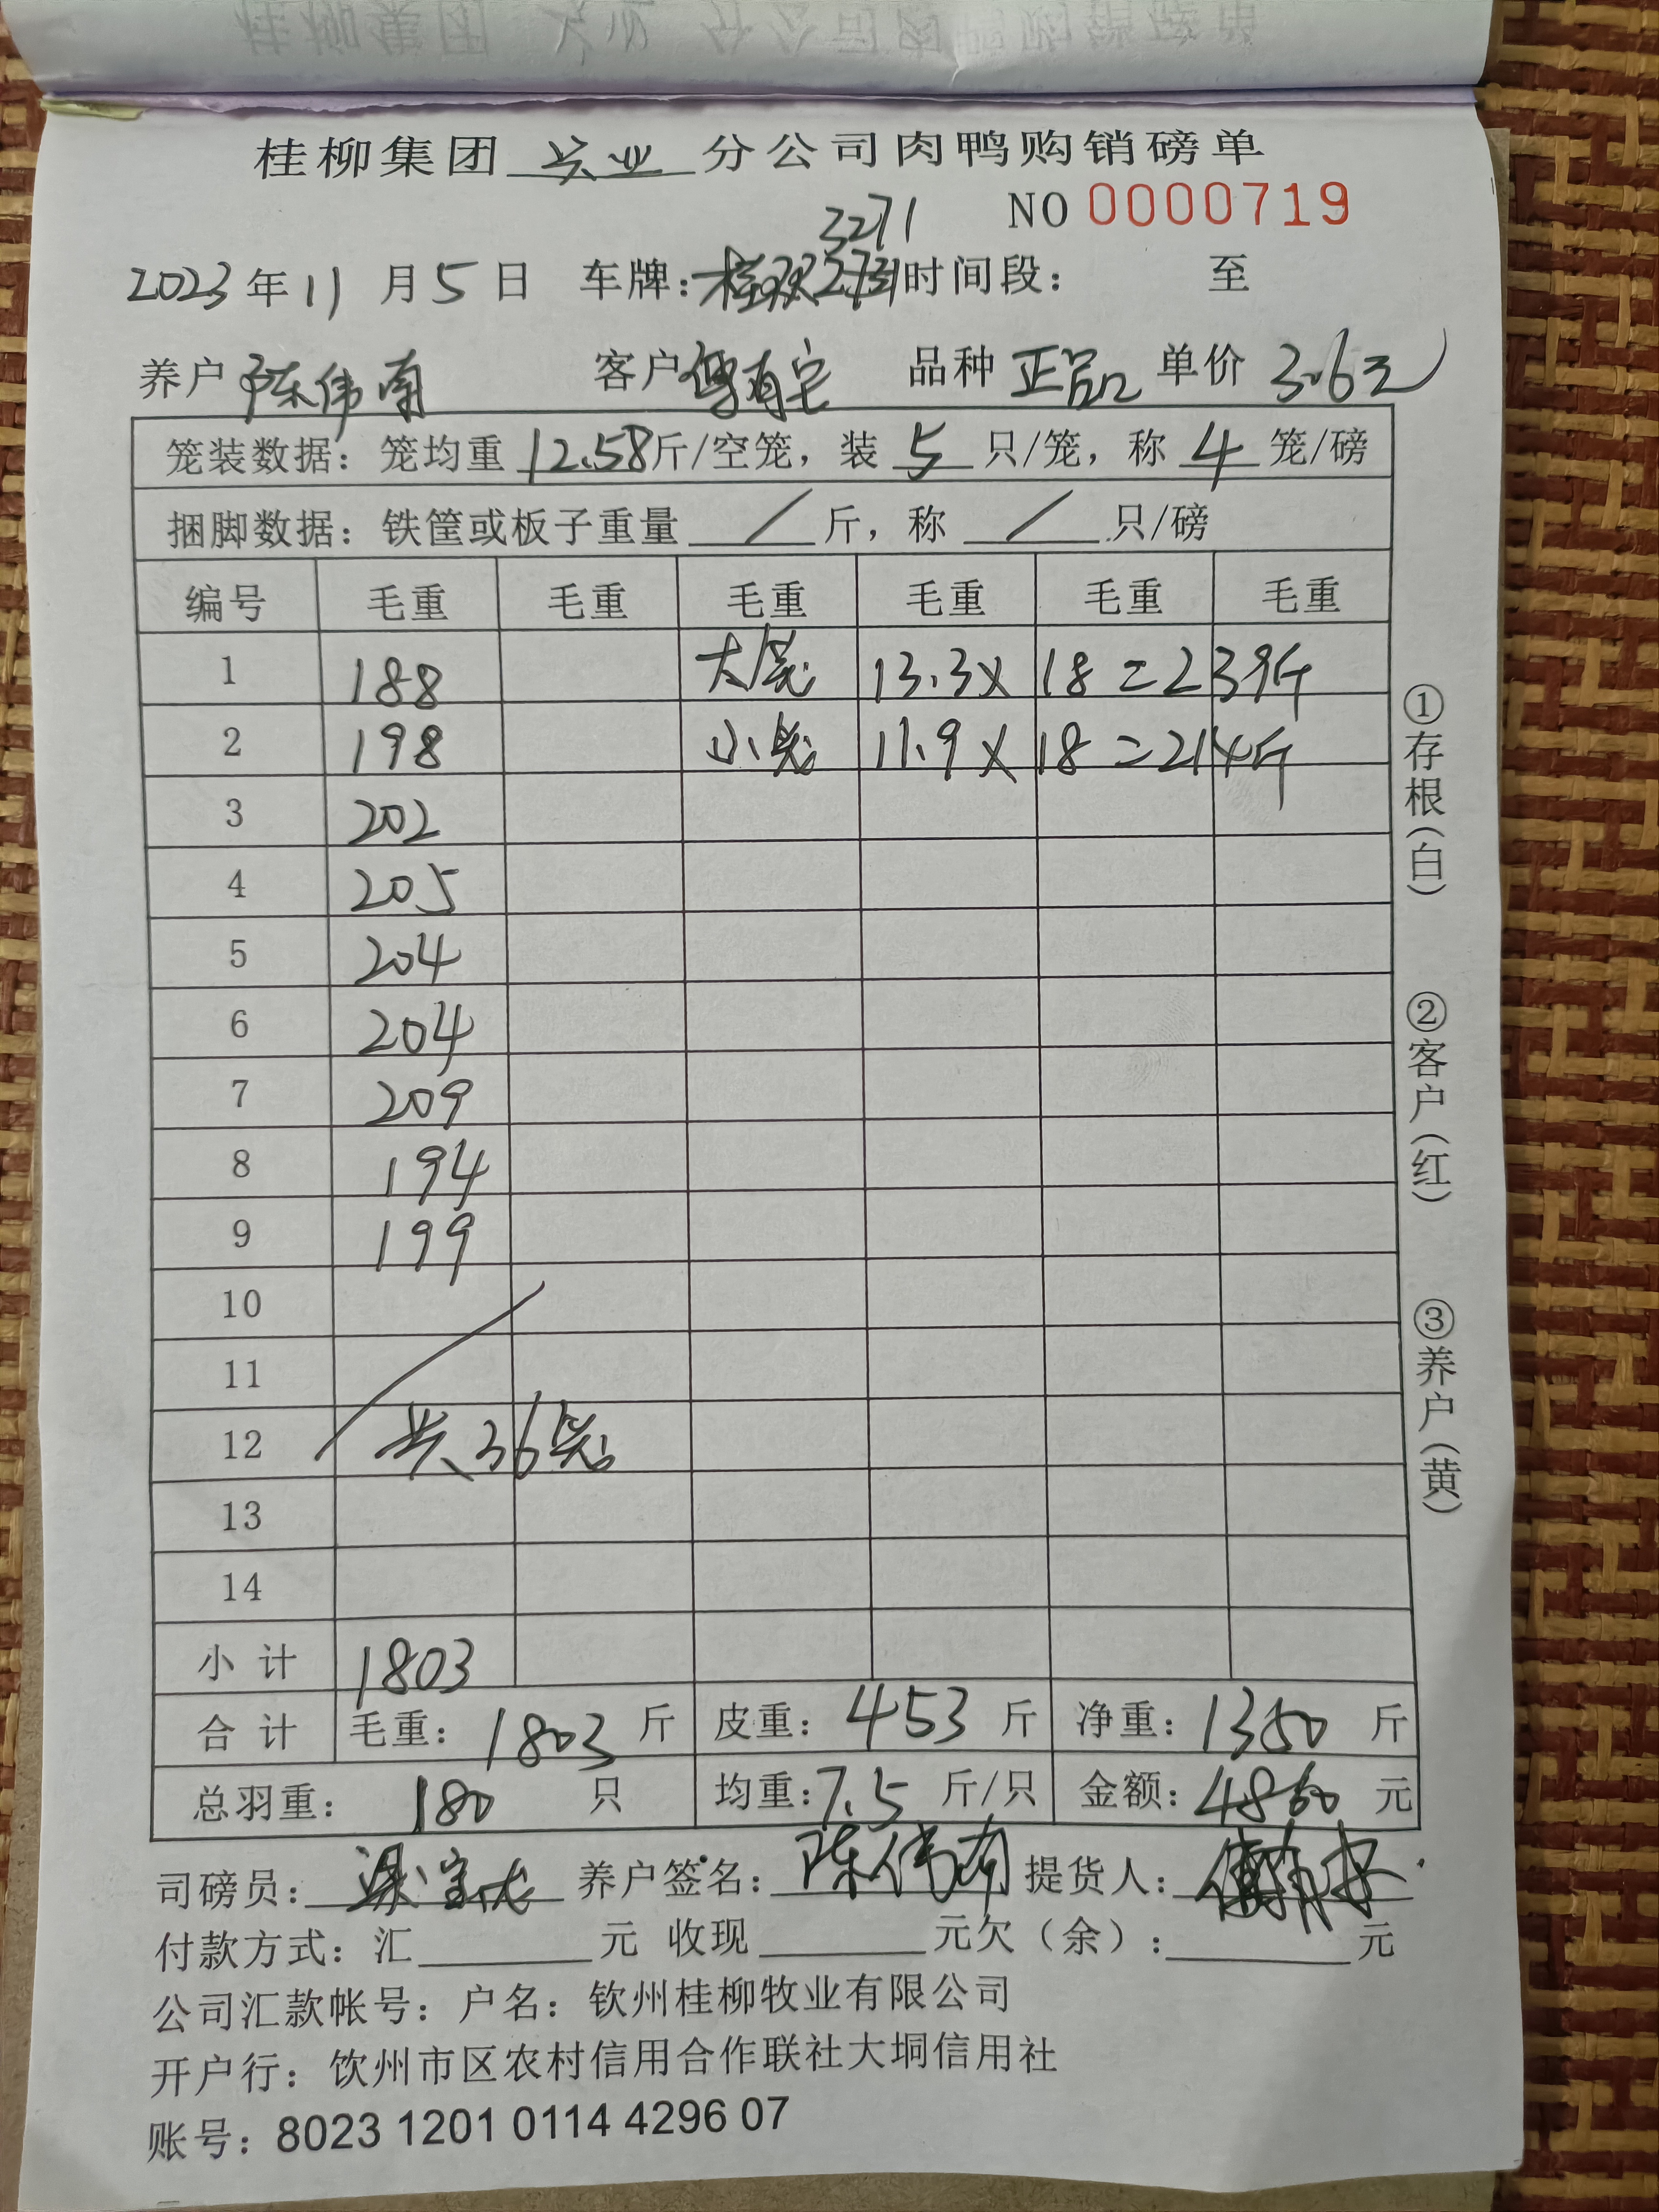 桂柳集团 兴业 分公司肉鸭购销磅单
NO 0000719
3271
2023年11月5日 车牌: 时间段： 至
养户 陈伟南 客户 傅有宝 品种 正品 单价 3.6元
笼装数据：笼均重 12.58斤/空笼，装 5 只/笼，称 4 笼/磅
捆脚数据：铁筐或板子重量 / 斤，称 / 只/磅
编号 毛重 毛重 毛重 毛重 毛重 毛重
1 188 大笼 13.3×18=239斤
2 198 小笼 11.9×18=214斤
3 202
4 205
5 204
6 204
7 209
8 194
9 199
10
11
12 共36笼
13
14
小计 1803
合计 毛重：1803斤 皮重：453斤 净重：1350斤
总羽重：180 只 均重：7.5 斤/只 金额：4860 元
司磅员： 养户签名：陈伟南 提货人：
付款方式：汇 元 收现 元欠（余）： 元
公司汇款帐号：户名：钦州桂柳牧业有限公司
开户行：饮州市区农村信用合作联社大垌信用社
账号：8023 1201 0114 4296 07
①存根（白）
②客户（红）
③养户（黄）